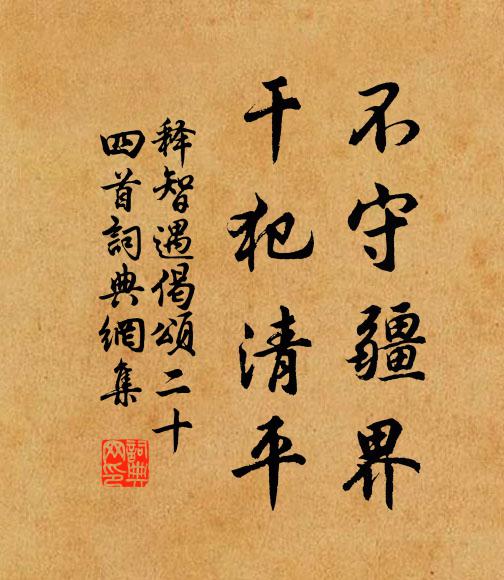 不守疆界
干犯清平
释智遇偈頌二十
四首詞典網集
詞典網印